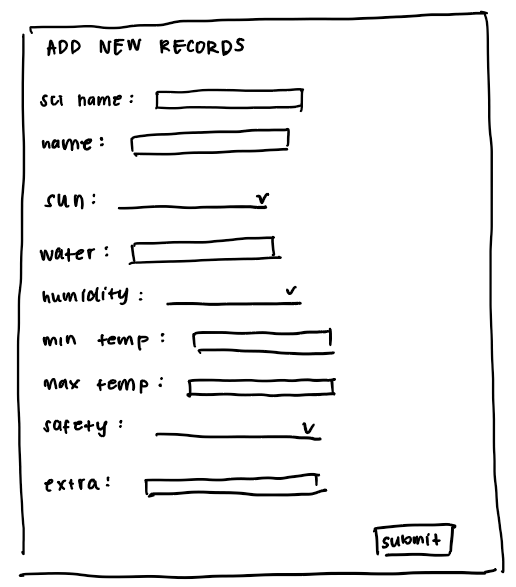 ADD NEW RECORDS
sci name:
name:
sun:
water:
humidity:
min temp:
max temp:
safety:
extra:
submit